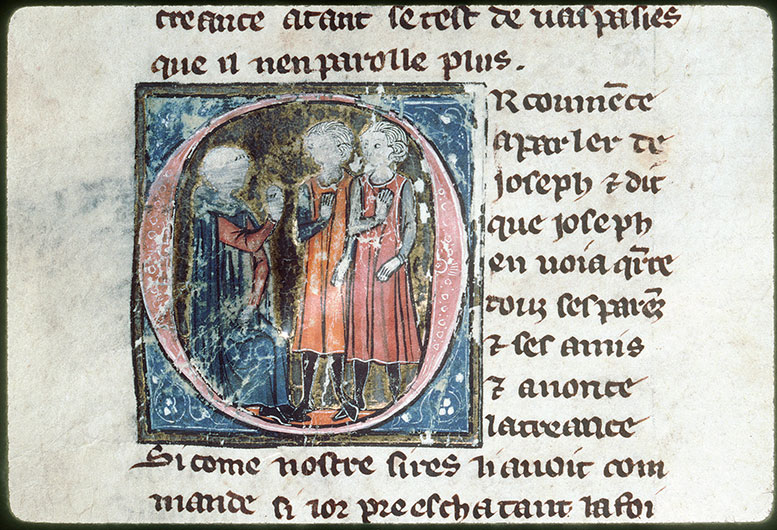 creance atant se test de uaspasies
que il nen parolle plus.
R coumēce
a parler de
joseph ⁊ dit
que joseph
en uoia q̄rre
touz ses parēz
⁊ ses amis
⁊ anonce
la creance
Si come nostre sires li auoit com
mande si lor preescha tant la foi